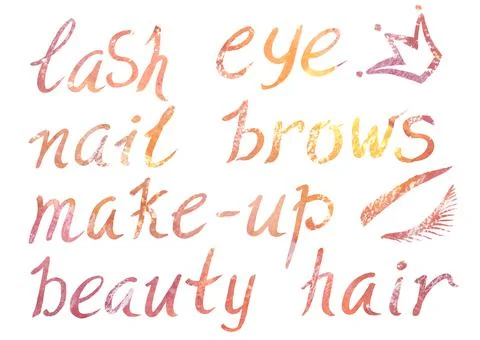 lash eye
nail brows
make-up
beauty hair